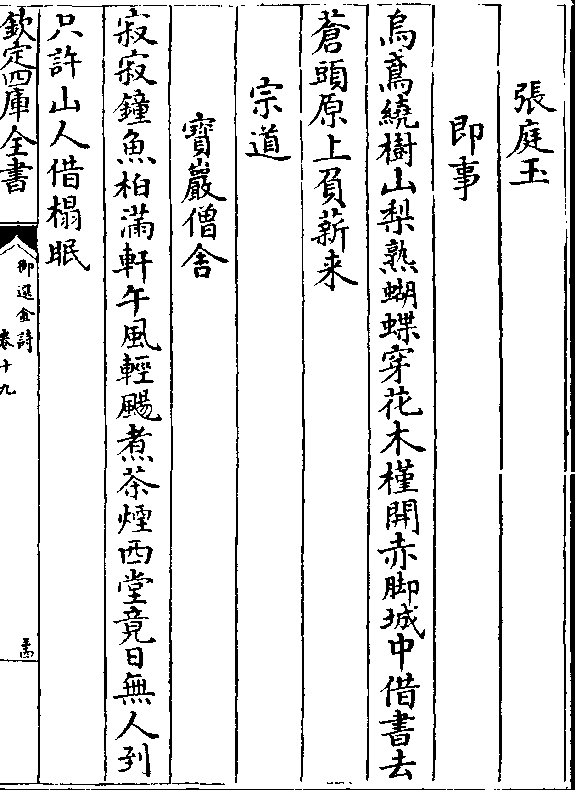 張庭玉
即事
烏鳶繞樹山梨熟蝴蝶穿花木槿開赤脚城中借書去
蒼頭原上負薪来
宗道
寳巖僧舎
寂寂鐘魚柏滿軒午風輕颺煮茶煙西堂竟日無人到
只許山人借榻眠
欽定四庫全書
御選金詩
卷十九